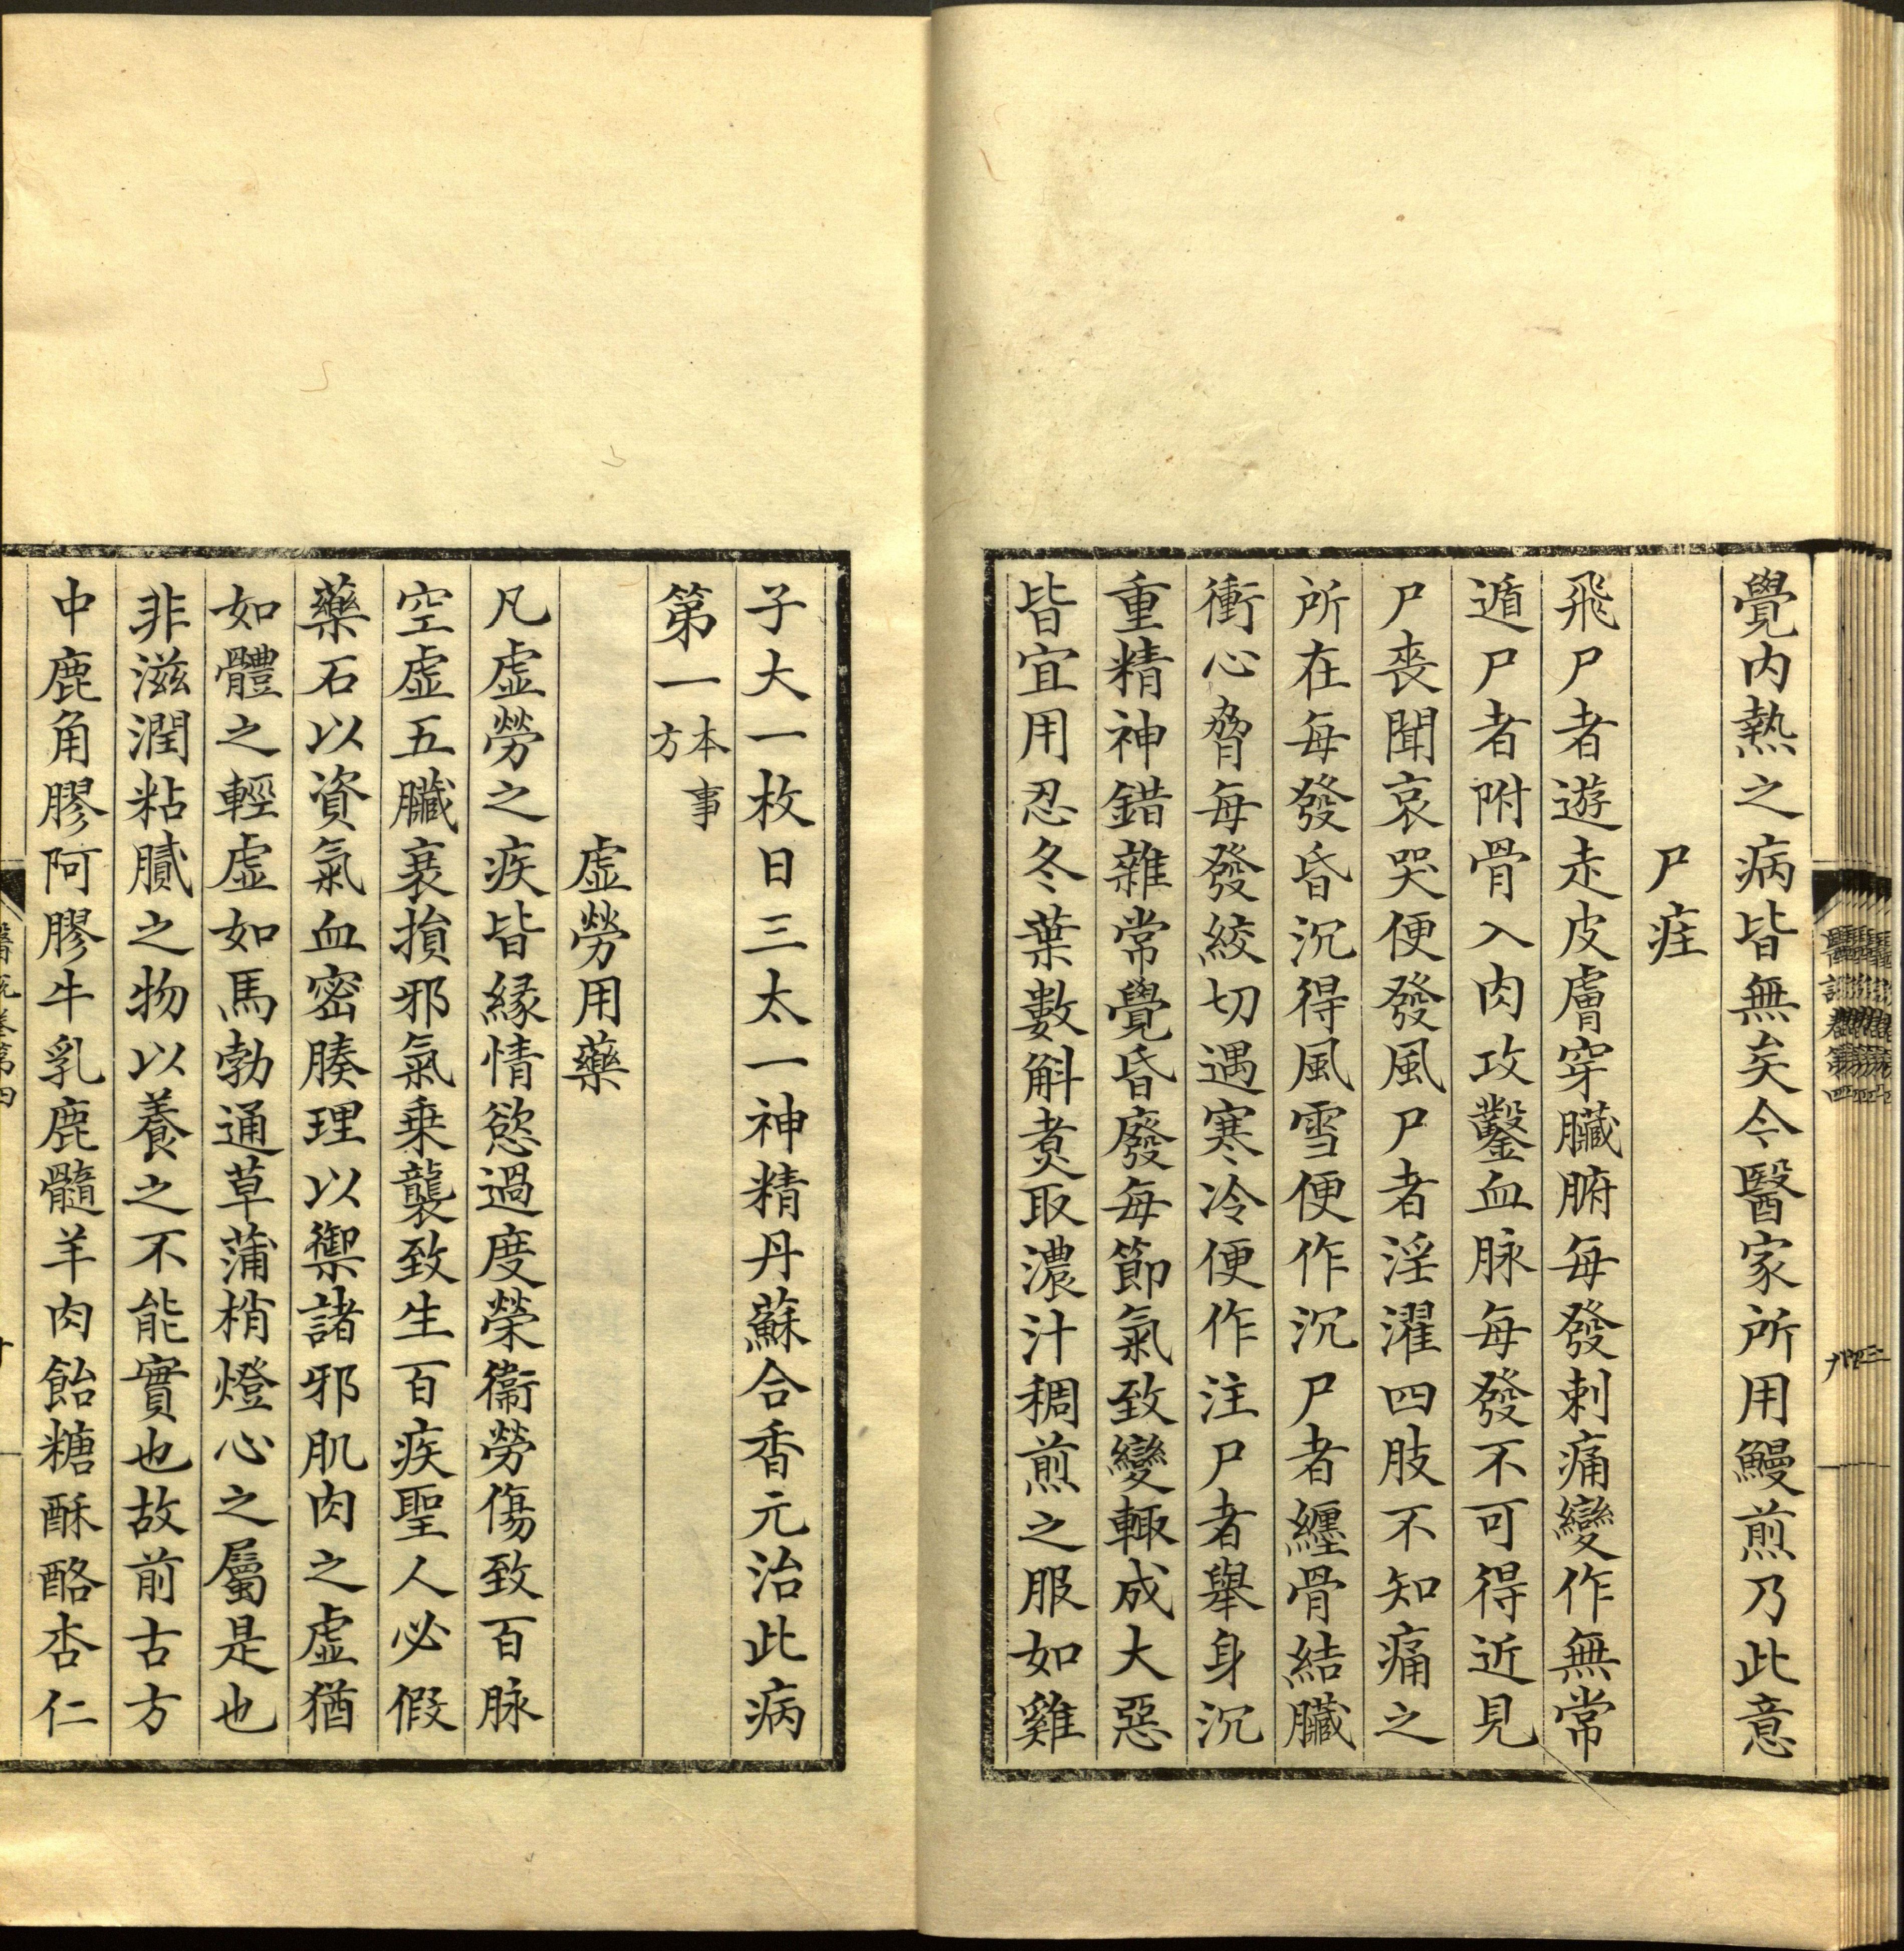 覺内熱之病皆無矣令醫家所用鰻煎乃此意
尸疰
飛尸者遊走皮膚穿臟腑每發刺痛變作無常
遁尸者附骨入肉攻鑿血脉每發不可得近見
尸喪聞哀哭便發風尸者淫濯四肢不知痛之
所在每發昏沉得風雪便作沉尸者纏骨結臟
衝心脅每發絞切遇寒冷便作注尸者舉身沉
重精神錯雜常覺昏廢每節氣致變輙成大惡
皆宜用忍冬葉數斛煑取濃汁稠煎之服如雞
子大一枚日三太一神精丹蘇合香元治此病
第一本事方
虚勞用藥
凡虚勞之疾皆縁情慾過度榮衞勞傷致百脉
空虚五臟衰損邪氣乗襲致生百疾聖人必假
藥石以資氣血密腠理以禦諸邪肌肉之虚猶
如體之輕虚如馬勃通草蒲梢燈心之屬是也
非滋潤粘膩之物以養之不能實也故前古方
中鹿角膠阿膠牛乳鹿髓羊肉飴糖酥酪杏仁
醫説卷第四